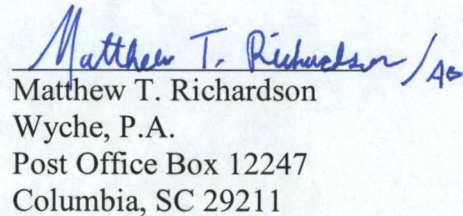 Matthew T. Richardson /AB
Matthew T. Richardson
Wyche, P.A.
Post Office Box 12247
Columbia, SC 29211